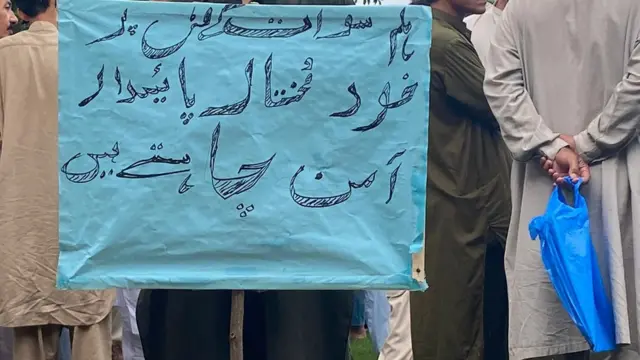 ہم سوات کی سرزمین پر
خود مختار پائیدار
امن چاہتے ہیں